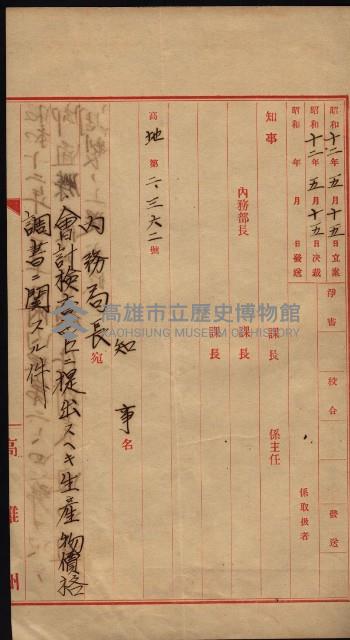 昭和十二年五月十五日立案
昭和十二年五月十五日決裁
昭和 年 月 日發送
淨書
校合
發送
知事
內務部長
課長
課長
課長
係主任
係取扱者
高地第二、三六二號
知事名
內務局長宛
會計檢査院ニ提出スヘキ生產物價格
調書ニ関スル件
高雄州
高雄市立歷史博物館
KAOHSIUNG MUSEUM OF HISTORY